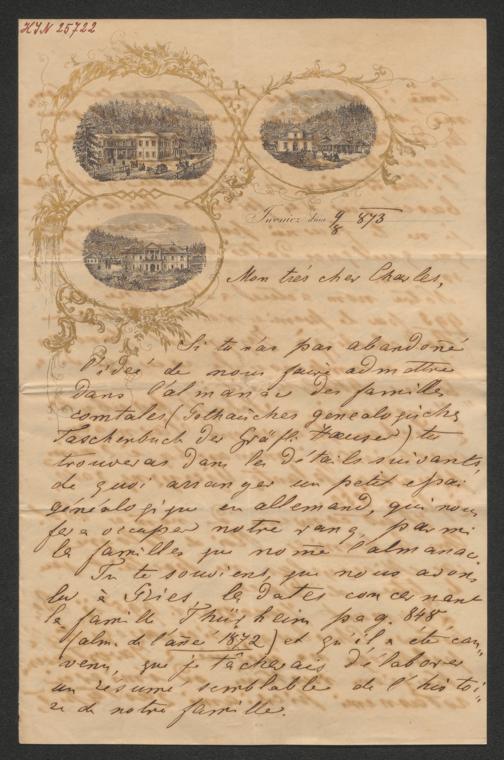 HJN 25722
Iwonicz dnia 9/8 873
Mon très cher Charles,
Si tu n'as pas abandoñé
l'ideé de nous faire admettre
dans l'almanac des familles
comtales (Gothaisches genealogisches
Taschenbuch der Gräfl. Haeuser) tu
trouveras dans les détails suivants,
de quoi arranger un petit
généalogique en allemand, qui nous
fera occuper notre rang, parmi
les familles que nome l'almanac.
Tu te souviens, que nous avons
lu à Gries, les dates concernant
la famille Thürheim pag. 848
(alm. de l'añeé 1872) et qu'il a été con"
venu, que je tâcherais d'élaborer
un résumé semblable de l'histoi"
re de notre famille.